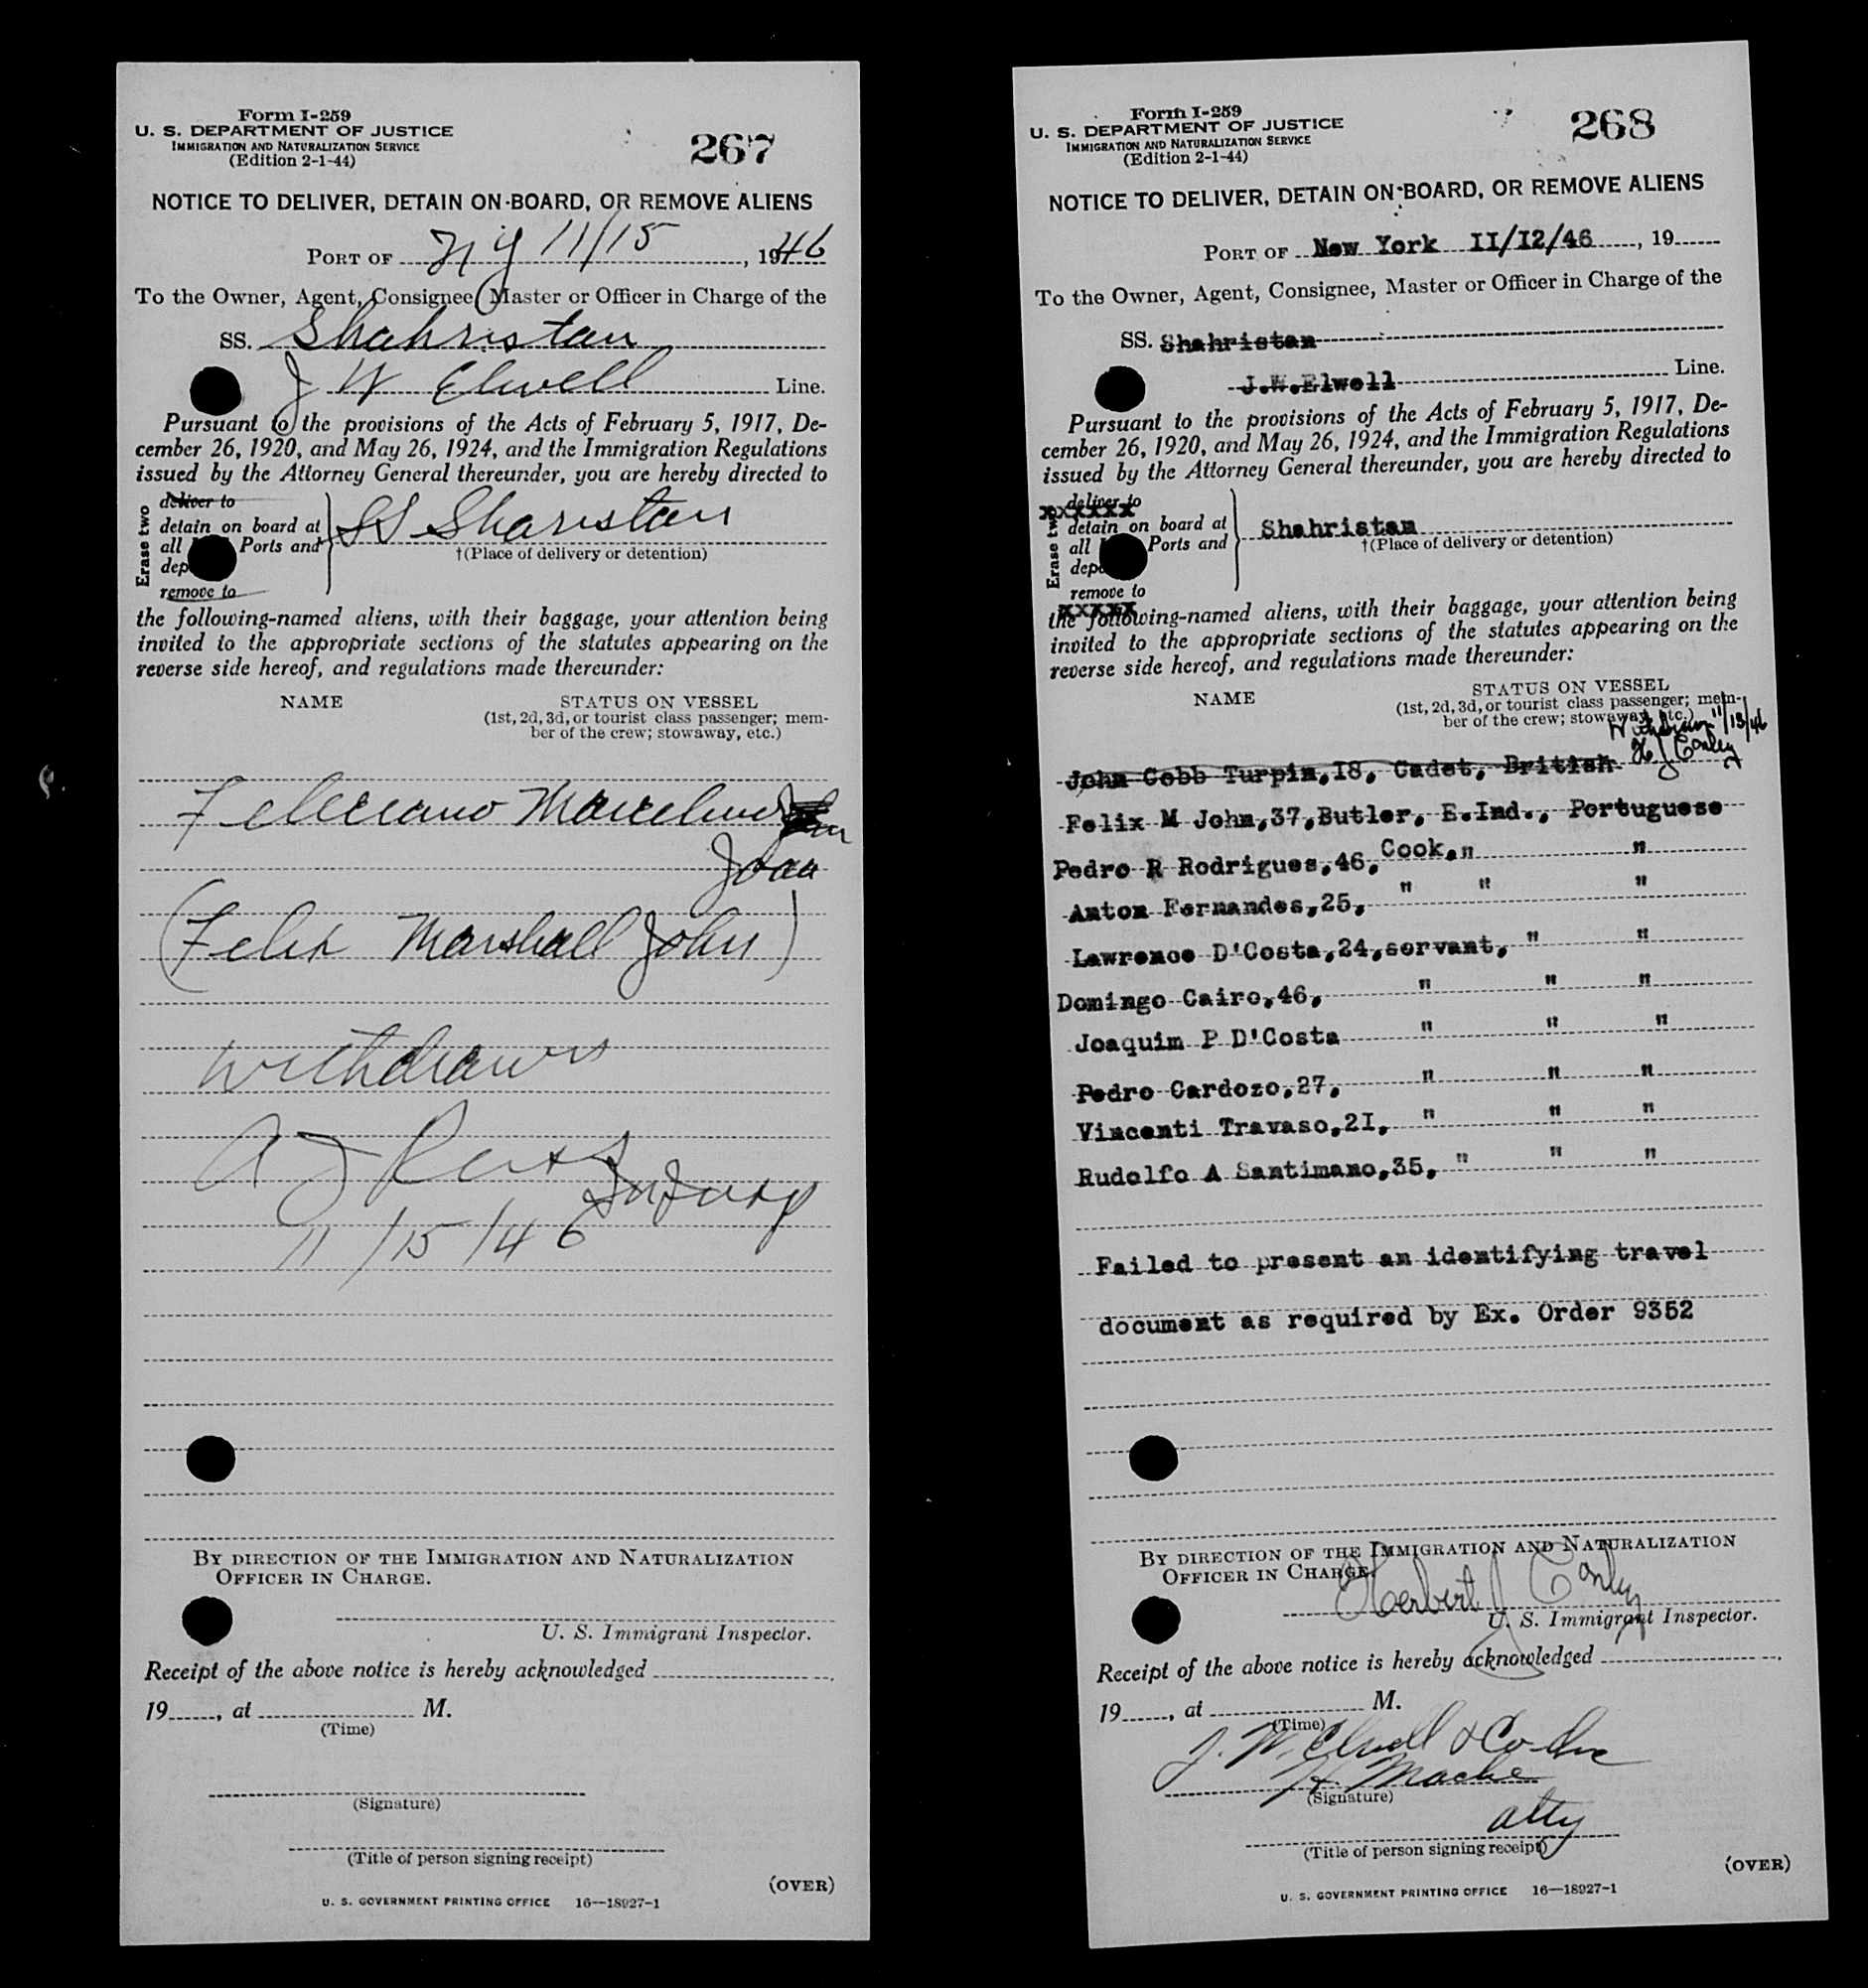 Form I-259
U. S. DEPARTMENT OF JUSTICE
IMMIGRATION AND NATURALIZATION SERVICE
(Edition 2-1-44)
267
NOTICE TO DELIVER, DETAIN ON BOARD, OR REMOVE ALIENS
PORT OF N Y 11/15, 1946
To the Owner, Agent, Consignee, Master or Officer in Charge of the
SS. Shahristan
J W Elwell Line.
Pursuant to the provisions of the Acts of February 5, 1917, De-
cember 26, 1920, and May 26, 1924, and the Immigration Regulations
issued by the Attorney General thereunder, you are hereby directed to
Erase two
deliver to
detain on board at
all Ports and
dep
remove to
SS Sharistan
†(Place of delivery or detention)
the following-named aliens, with their baggage, your attention being
invited to the appropriate sections of the statutes appearing on the
reverse side hereof, and regulations made thereunder:
NAME
STATUS ON VESSEL
(1st, 2d, 3d, or tourist class passenger; mem-
ber of the crew; stowaway, etc.)
Feliciano Marcelino
Joao
(Felix Marshall John)
withdrawn
A J
11/15/46
BY DIRECTION OF THE IMMIGRATION AND NATURALIZATION
OFFICER IN CHARGE.
U. S. Immigrant Inspector.
Receipt of the above notice is hereby acknowledged
19, at M.
(Time)
(Signature)
(Title of person signing receipt)
(OVER)
U. S. GOVERNMENT PRINTING OFFICE 16—18927-1
Form I-259
U. S. DEPARTMENT OF JUSTICE
IMMIGRATION AND NATURALIZATION SERVICE
(Edition 2-1-44)
268
NOTICE TO DELIVER, DETAIN ON BOARD, OR REMOVE ALIENS
PORT OF New York II/I2/46, 19
To the Owner, Agent, Consignee, Master or Officer in Charge of the
SS. Shahristan
J.W.Elwell Line.
Pursuant to the provisions of the Acts of February 5, 1917, De-
cember 26, 1920, and May 26, 1924, and the Immigration Regulations
issued by the Attorney General thereunder, you are hereby directed to
Erase two
deliver to
xxxxxx
detain on board at
all Ports and
dep
remove to
xxxxx
Shahristan
†(Place of delivery or detention)
the following-named aliens, with their baggage, your attention being
invited to the appropriate sections of the statutes appearing on the
reverse side hereof, and regulations made thereunder:
NAME
STATUS ON VESSEL
(1st, 2d, 3d, or tourist class passenger; mem-
ber of the crew; stowaway, etc.)
Withdrawn 11/13/46
H J Conley
John Cobb Turpin,I8, Cadet, British
Felix M John,37,Butler, E.Ind., Portuguese
Pedro R Rodrigues,46,Cook," "
Anton Fernandes,25, " " "
Lawrence D'Costa,24,servant, " "
Domingo Cairo,46, " " "
Joaquim P D'Costa " " "
Pedro Cardozo,27, " " "
Vincenti Travaso,2I, " " "
Rudolfo A Santimano,35, " " "
Failed to present an identifying travel
document as required by Ex. Order 9352
BY DIRECTION OF THE IMMIGRATION AND NATURALIZATION
OFFICER IN CHARGE.
Herbert J Conley
U. S. Immigrant Inspector.
Receipt of the above notice is hereby acknowledged
19, at M.
(Time)
J. W. Elwell & Co Inc
H. Mache
(Signature)
atty
(Title of person signing receipt)
(OVER)
U. S. GOVERNMENT PRINTING OFFICE 16—18927-1